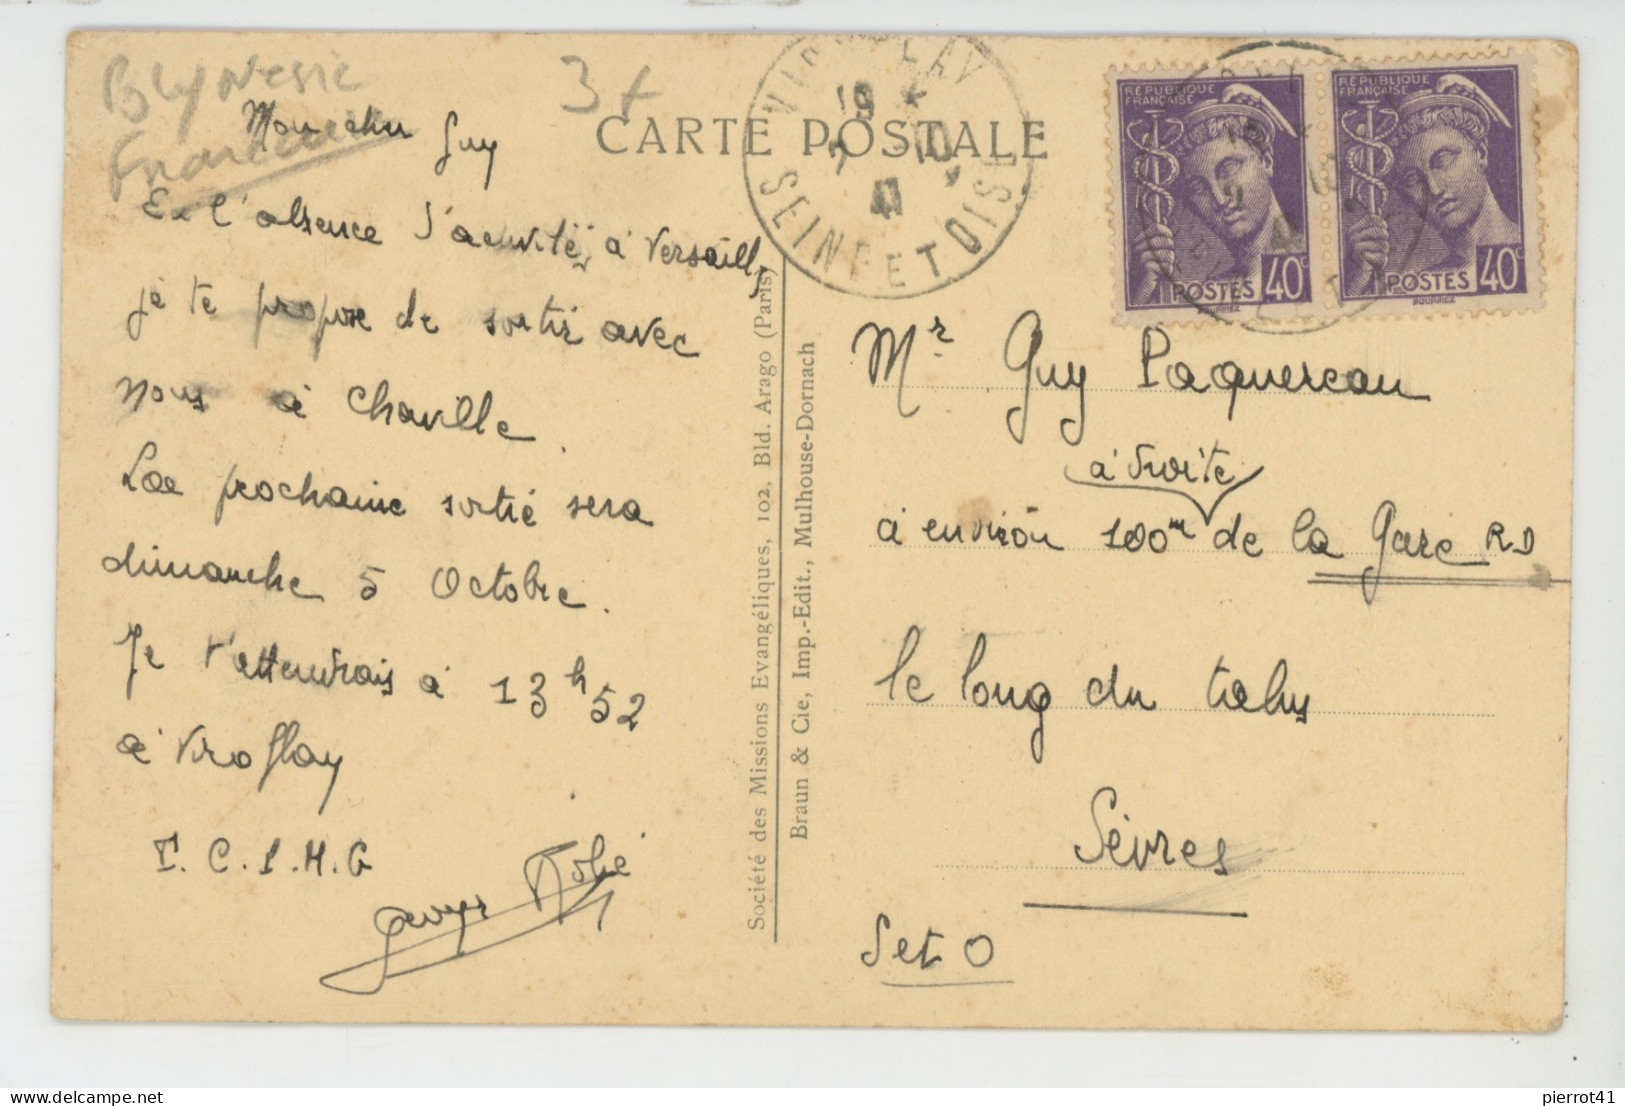 Polynésie
Française
3+
CARTE POSTALE
VIROFLAY
19
2
10
41
SEINE ET OISE
RÉPUBLIQUE
FRANÇAISE
POSTES 40c
RÉPUBLIQUE
FRANÇAISE
POSTES 40c
Mon cher
Guy
En l'absence d'activité à Versailles
je te propose de sortir avec
nous à Chaville.
La prochaine sortie sera
dimanche 5 Octobre.
Je t'attendrais à 13h52
à Viroflay
T.C.S.M.G
Société des Missions Evangéliques, 102, Bld. Arago (Paris)
Braun & Cie, Imp.-Edit., Mulhouse-Dornach
Mr Guy Paquereau
à droite
à environ 100m de la Gare R.D
le long du talus
Sèvres
S et O
pierrot41